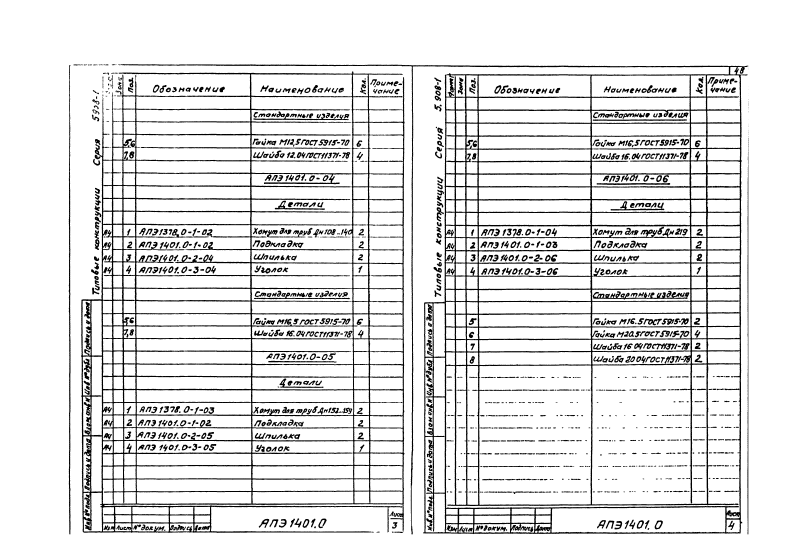 48
Типовые конструкции Серия 5.908-1
Поз. Обозначение Наименование Кол. Примечание
Стандартные изделия
5,6 Гайка М12,5 ГОСТ 5915-70 6
7,8 Шайба 12.04 ГОСТ 11371-78 4
АПЭ1401.0-04
Детали
А4 1 АПЭ1378.0-1-02 Хомут для труб Дн 108..140 2
А4 2 АПЭ1401.0-1-02 Подкладка 2
А4 3 АПЭ1401.0-2-04 Шпилька 2
А4 4 АПЭ1401.0-3-04 Уголок 1
Стандартные изделия
5,6 Гайка М16,5 ГОСТ 5915-70 6
7,8 Шайба 16.04 ГОСТ 11371-78 4
АПЭ1401.0-05
Детали
А4 1 АПЭ1378.0-1-03 Хомут для труб Дн152..159 2
А4 2 АПЭ1401.0-1-02 Подкладка 2
А4 3 АПЭ1401.0-2-05 Шпилька 2
А4 4 АПЭ1401.0-3-05 Уголок 1
Инв.№ подл. Подпись и дата Взам.инв.№ Инв.№ дубл. Подпись и дата
Изм Лист № докум. Подпись Дата
АПЭ1401.0
Лист
3
Типовые конструкции Серия 5.908-1
Формат Зона Поз. Обозначение Наименование Кол. Примечание
Стандартные изделия
5,6 Гайка М16,5 ГОСТ 5915-70 6
7,8 Шайба 16.04 ГОСТ 11371-78 4
АПЭ1401.0-06
Детали
А4 1 АПЭ1378.0-1-04 Хомут для труб Дн219 2
А4 2 АПЭ1401.0-1-03 Подкладка 2
А4 3 АПЭ1401.0-2-06 Шпилька 2
А4 4 АПЭ1401.0-3-06 Уголок 1
Стандартные изделия
5 Гайка М16.5 ГОСТ 5915-70 2
6 Гайка М20.5 ГОСТ 5915-70 4
7 Шайба 16 04 ГОСТ 11371-78 2
8 Шайба 20 04 ГОСТ 11371-78 2
Инв.№ подл. Подпись и дата Взам.инв.№ Инв.№ дубл. Подпись и дата
Изм Лист № докум. Подпись Дата
АПЭ1401.0
Лист
4